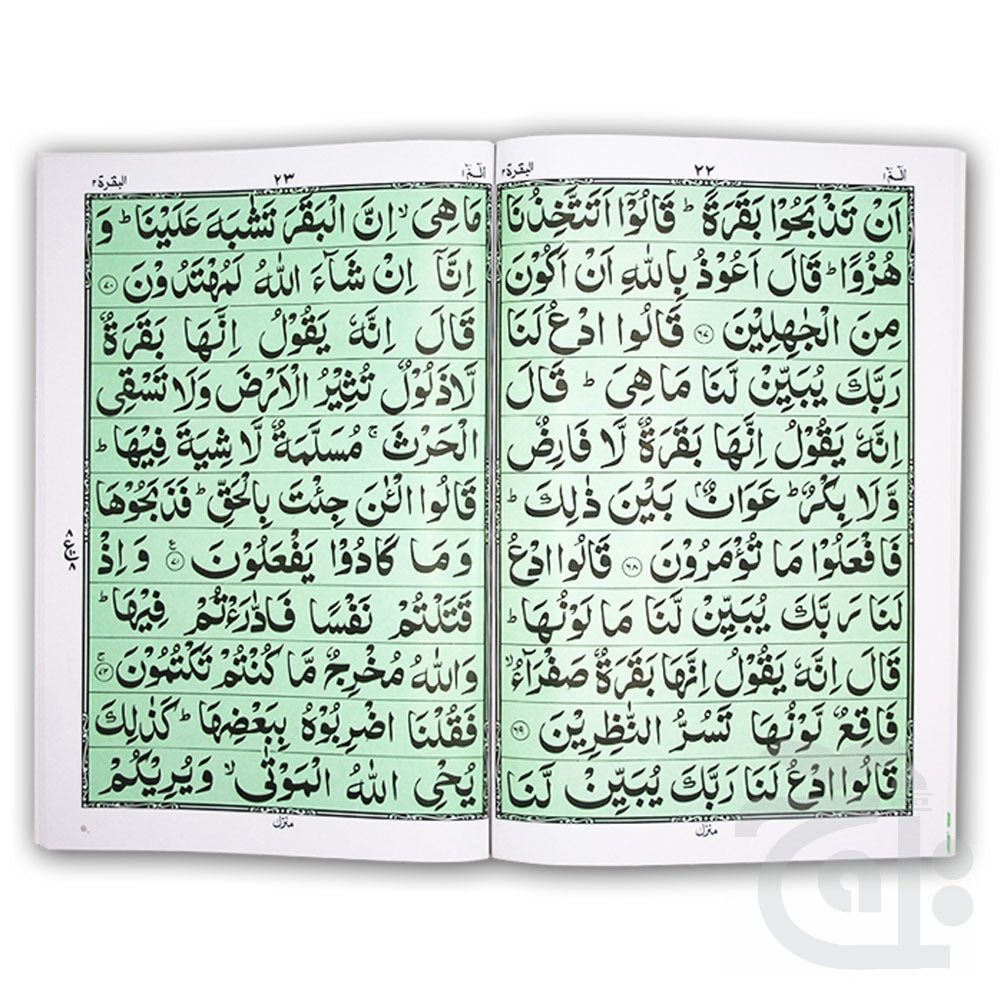 البقرة ٢
٢٢
الٓمّٓ ١
اَنْ تَذْبَحُوْا بَقَرَةً ؕ قَالُوْۤا اَتَتَّخِذُنَا
هُزُوًا ؕ قَالَ اَعُوْذُ بِاللّٰهِ اَنْ اَكُوْنَ
مِنَ الْجٰهِلِيْنَ ﴿۶۷﴾ قَالُوا ادْعُ لَنَا
رَبَّكَ يُبَيِّنْ لَّنَا مَا هِىَ ؕ قَالَ
اِنَّهٗ يَقُوْلُ اِنَّهَا بَقَرَةٌ لَّا فَارِضٌ
وَّلَا بِكْرٌ ؕ عَوَانٌۢ بَيْنَ ذٰلِكَ ؕ
فَافْعَلُوْا مَا تُؤْمَرُوْنَ ﴿۶۸﴾ قَالُوا ادْعُ
لَنَا رَبَّكَ يُبَيِّنْ لَّنَا مَا لَوْنُهَا ؕ
قَالَ اِنَّهٗ يَقُوْلُ اِنَّهَا بَقَرَةٌ صَفْرَآءُ ۙ
فَاقِعٌ لَّوْنُهَا تَسُرُّ النّٰظِرِيْنَ ﴿۶۹﴾
قَالُوا ادْعُ لَنَا رَبَّكَ يُبَيِّنْ لَّنَا
منزل
البقرة ٢
٢٣
الٓمّٓ ١
مَا هِىَ ۙ اِنَّ الْبَقَرَ تَشٰبَهَ عَلَيْنَا ؕ وَ
اِنَّاۤ اِنْ شَآءَ اللّٰهُ لَمُهْتَدُوْنَ ﴿۷۰﴾
قَالَ اِنَّهٗ يَقُوْلُ اِنَّهَا بَقَرَةٌ
لَّا ذَلُوْلٌ تُثِيْرُ الْاَرْضَ وَلَا تَسْقِى
الْحَرْثَ ۚ مُسَلَّمَةٌ لَّا شِيَةَ فِيْهَا ؕ
قَالُوا الْـٰٔنَ جِئْتَ بِالْحَقِّ ؕ فَذَبَحُوْهَا
وَمَا كَادُوْا يَفْعَلُوْنَ ﴿۷۱﴾ وَاِذْ
قَتَلْتُمْ نَفْسًا فَادّٰرَءْتُمْ فِيْهَا ؕ
وَاللّٰهُ مُخْرِجٌ مَّا كُنْتُمْ تَكْتُمُوْنَ ﴿۷۲﴾
فَقُلْنَا اضْرِبُوْهُ بِبَعْضِهَا ؕ كَذٰلِكَ
يُحْىِ اللّٰهُ الْمَوْتٰى ۙ وَيُرِيْكُمْ
منزل